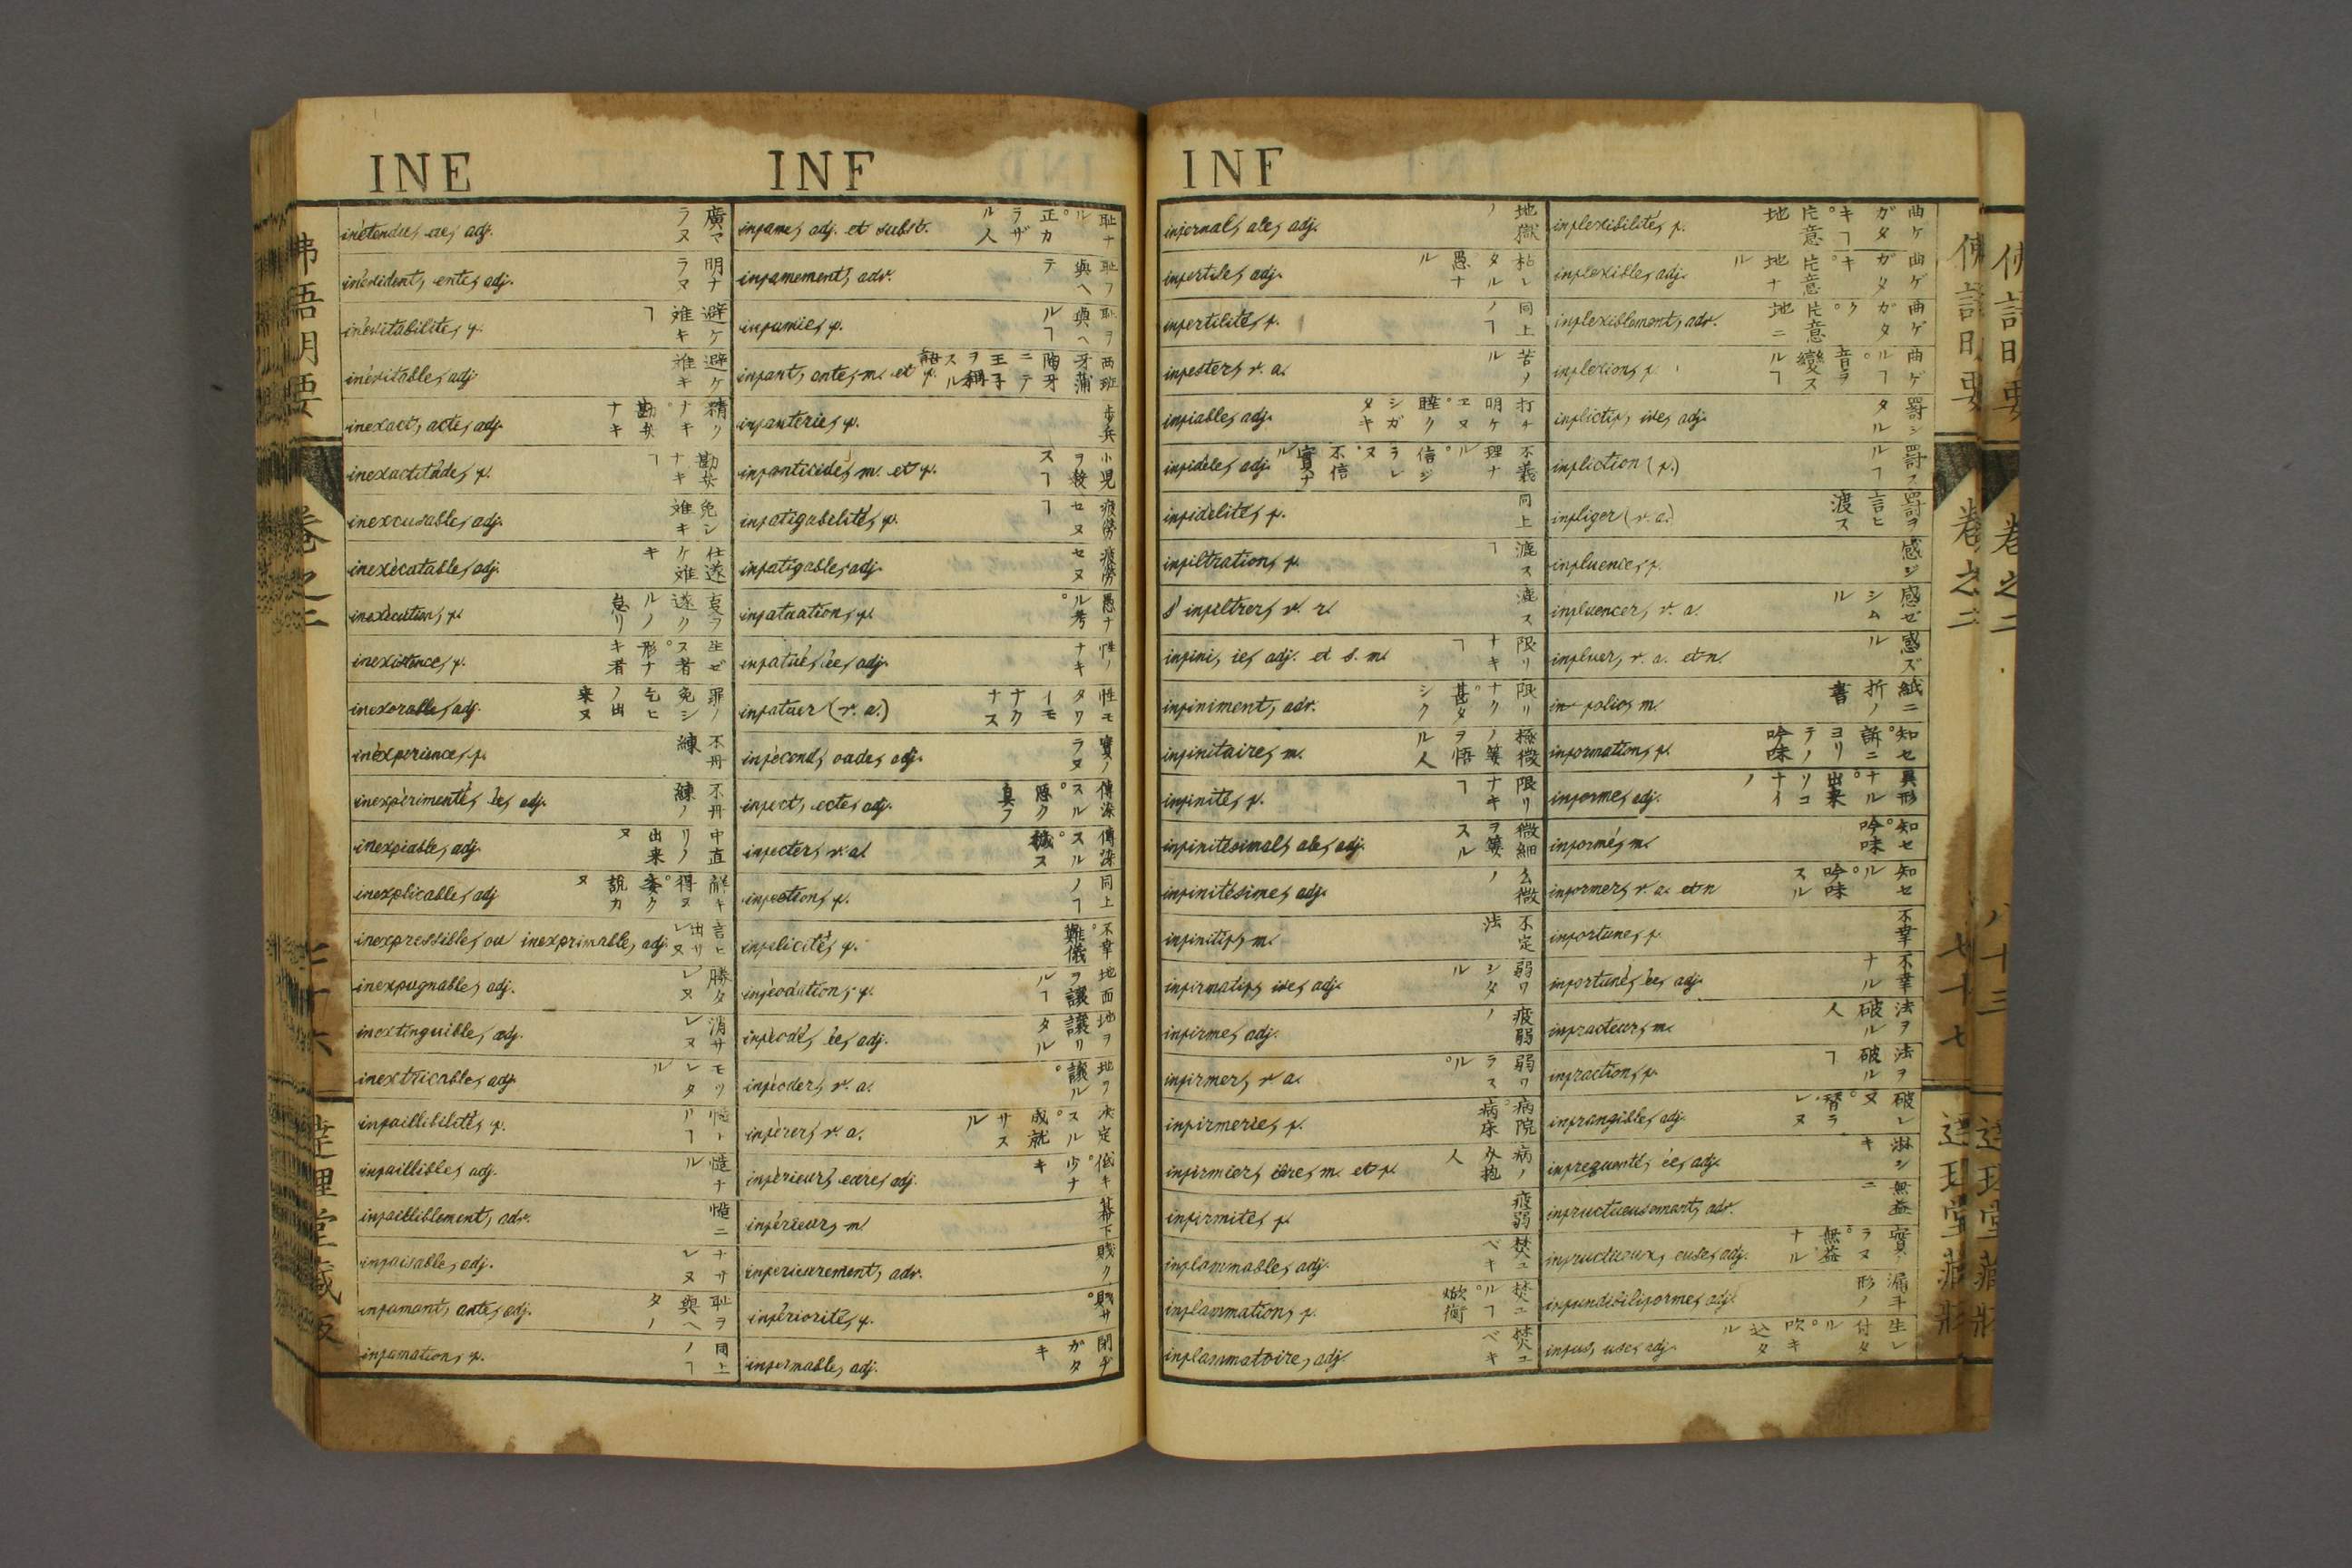 INE
INF
INF
inétendu, ue, adj. 廣マラヌ
inévident, ente, adj. 明ナラヌ
inévitabilité, f. 避ケ難キヿ
inévitable, adj. 避ケ難キ
inexact, acte, adj.
inexactitude, f.
inexcusable, adj. 免シ難キ
inexécutable, adj. 仕遂ケ難キ
inexécution, f.
inexistence, f.
inexorable, adj. 罪ノ免シ乞ヒノ出来ヌ
inexpérience, f. 不丹練
inexpérimenté, ée, adj. 不丹練ノ
inexpiable, adj. 中直リノ出来ヌ
inexplicable, adj
inexpressible, ou inexprimable, adj. 言ヒ出サレヌ
inexpugnable, adj. 勝タレヌ
inextinguible, adj. 消サレヌ
inextricable, adj. モツレタル
infaillibilité, f.
infaillible, adj.
infailliblement, adv.
infaisable, adj. ナサレヌ
infamant, ante, adj. 耻ヲ與ヘタノ
infamation, f. 同上ノヿ
infame, adj. et subst. 耻ナル。正カラザル人
infamement, adv.
infamie, f. 耻ヲ與ヘルヿ
infant, ante, m. et f.
infanterie, f. 歩兵
infanticide, m. et f. 小児ヲ殺スヿ
infatigabilité, f. 疲労セヌヿ
infatigable, adj. 疲労セヌ
infatuation, f.
infatué, ée, adj. 性ノナキ
infatuer (v. a.)
infécond, onde, adj. 實ノラヌ
infect, ecte, adj.
infecter, v. a. 傳染スル。穢ス
infection, f. 同上ノヿ
infélicité, f. 不幸。難儀
inféodation, f. 地面ヲ譲ルヿ
inféodé, ée, adj. 地ヲ譲リタル
inféoder, v. a. 地ヲ譲ル。
inférer, v. a. 决定スル。成就サスル
inférieur, eure, adj. 低キ。少ナキ
inférieur, m. 幕下
inférieurement, adv. 賎ク
infériorité, f. 賎サ。
infermable, adj. 閉ヂガタキ
infernal, ale, adj. 地獄ノ
infertile, adj.
infertilité, f. 同上ノヿ
infester, v. a.
infiable, adj.
infidele, adj.
infidélité, f. 同上
infiltration, f. 漉スヿ
s'infiltrer, v. r. 漉ス
infini, ie, adj. et s. m. 限リナキヿ
infiniment, adv. 限リナク。甚タシク
infinitaire, m.
infinité, f. 限リナキヿ
infinitésimal, ale, adj. 微細ヲ筭スル
infinitésime, adj.
infinitif, m. 不定法
infirmatif, ive, adj. 弱ワシタル
infirme, adj. 疲弱ノ
infirmer, v. a. 弱ワラスル。
infirmerie, f. 病院。病床
infirmier, ière, m. et f.
infirmité, f. 疲弱
inflammable, adj. 焚ユベキ
inflammation, f. 焚ユルヿ。焮衝
inflammatoire, adj. 焚ユベキ
inflexibilité, f. 曲ケガタキヿ。片意地
inflexible, adj. 曲ゲガタキ。片意地ナル
inflexiblement, adv. 曲ゲガタク。片意地ニ
inflexion, f. 曲ゲルヿ。音ヲ變スルヿ
inflictif, ive, adj. 罸シタル
infliction (f.) 罸スルヿ
infliger (v. a.) 罸ヲ言ヒ渡ス
influence, f. 感ジ
influencer, v. a. 感ゼシムル
influer, v. a. et n. 感ズル
in-folio, m. 紙ニ折ノ書
information, f.
informe, adj.
informé, m. 知セ。吟味
informer, v. a. et n 知セル。吟味スル
infortune, f. 不幸
infortuné, ée, adj. 不幸ナル
infracteur, m. 法ヲ破ル人
infraction, f. 法ヲ破ルヿ
infrangible, adj.
infrequenté, ée, adj. 淋シキ
infructueusement, adv. 無益ニ
infructueux, euse, adj. 實ラヌ。無益ナル
infundibiliforme, adj. 形ノ
infus, use, adj. 生レ付タル。吹キ込タル
卷之二
七十七
卷之二
八十三